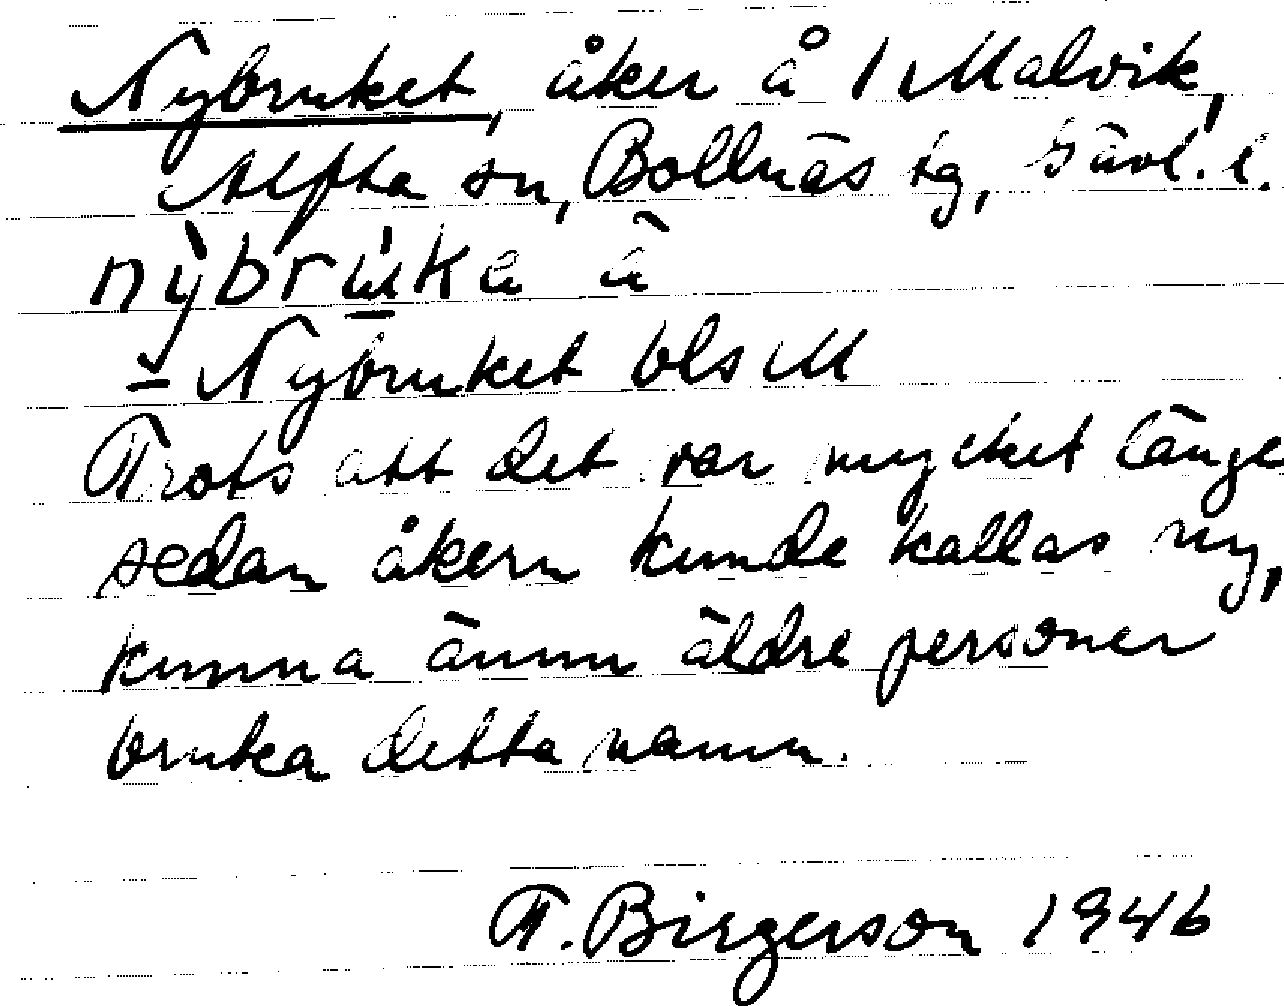 Nybruket, åker å 1 Malvik,
Alfta sn, Bollnäs tg, Gävl. l.
nỳbrùka ā
= Nybruket bls M
Trots att det var mycket länge
sedan åkern kunde kallas ny,
kunna ännu äldre personer
bruka detta namn.
T. Birgerson 1946